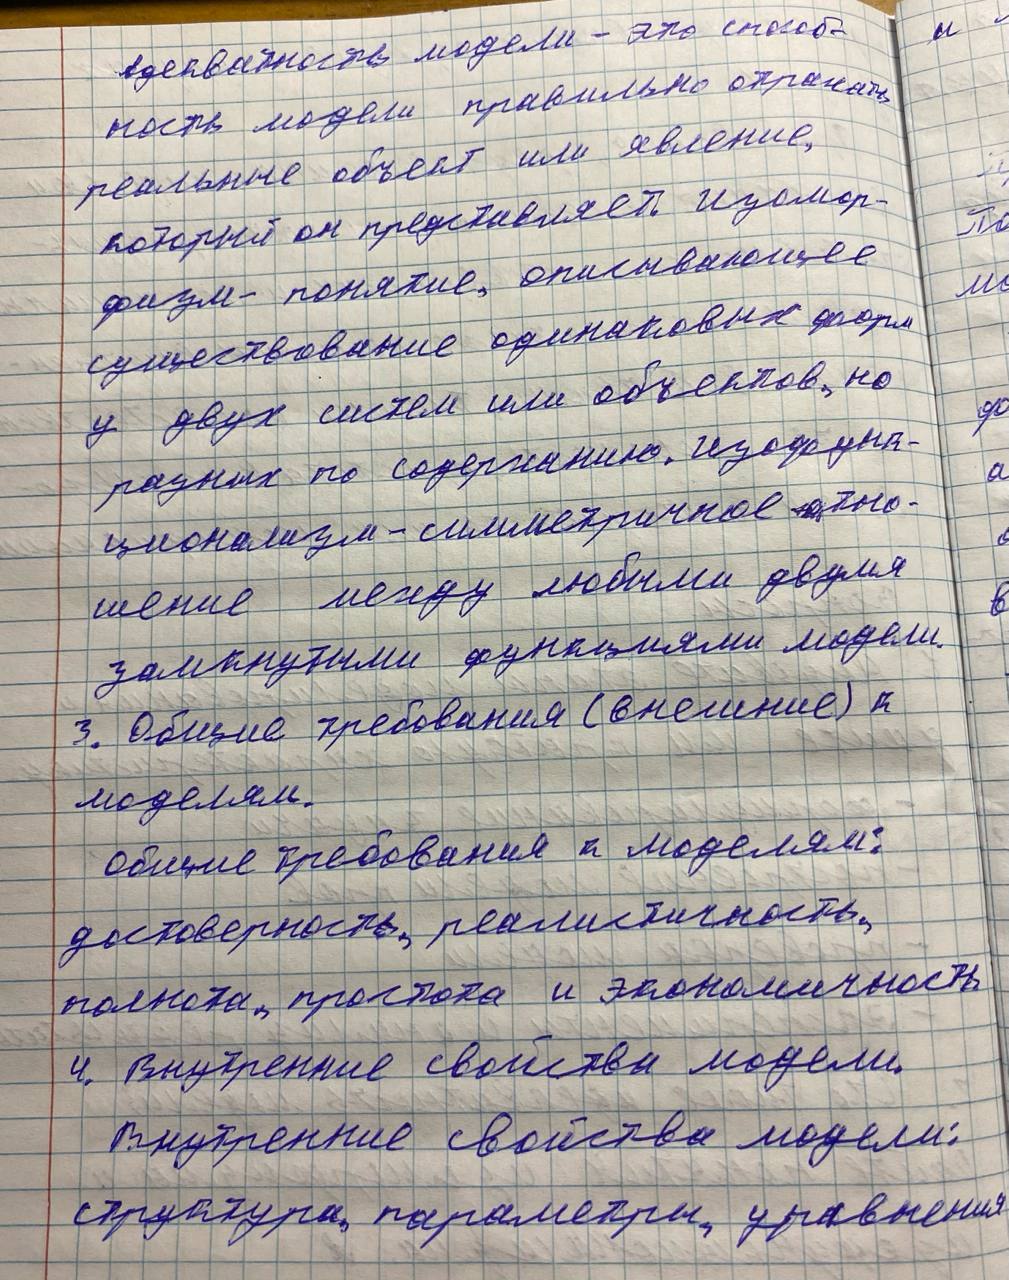 Адекватность модели - это способ-
ность модели правильно отражать
реальные объект или явление,
который он представляет. Изомор-
физм - понятие, описывающее
существование одинаковых форм
у двух систем или объектов, но
разных по содержанию. Изофунк-
ционализм - симметричное отно-
шение между любыми двумя
замкнутыми функциями модели.
3. Общие требования (внешние) к
моделям.
Общие требования к моделям:
достоверность, реалистичность,
полнота, простота и экономичность
4. Внутренние свойства модели.
Внутренние свойства модели:
структура, параметры, уравнения
и
мо
а
в